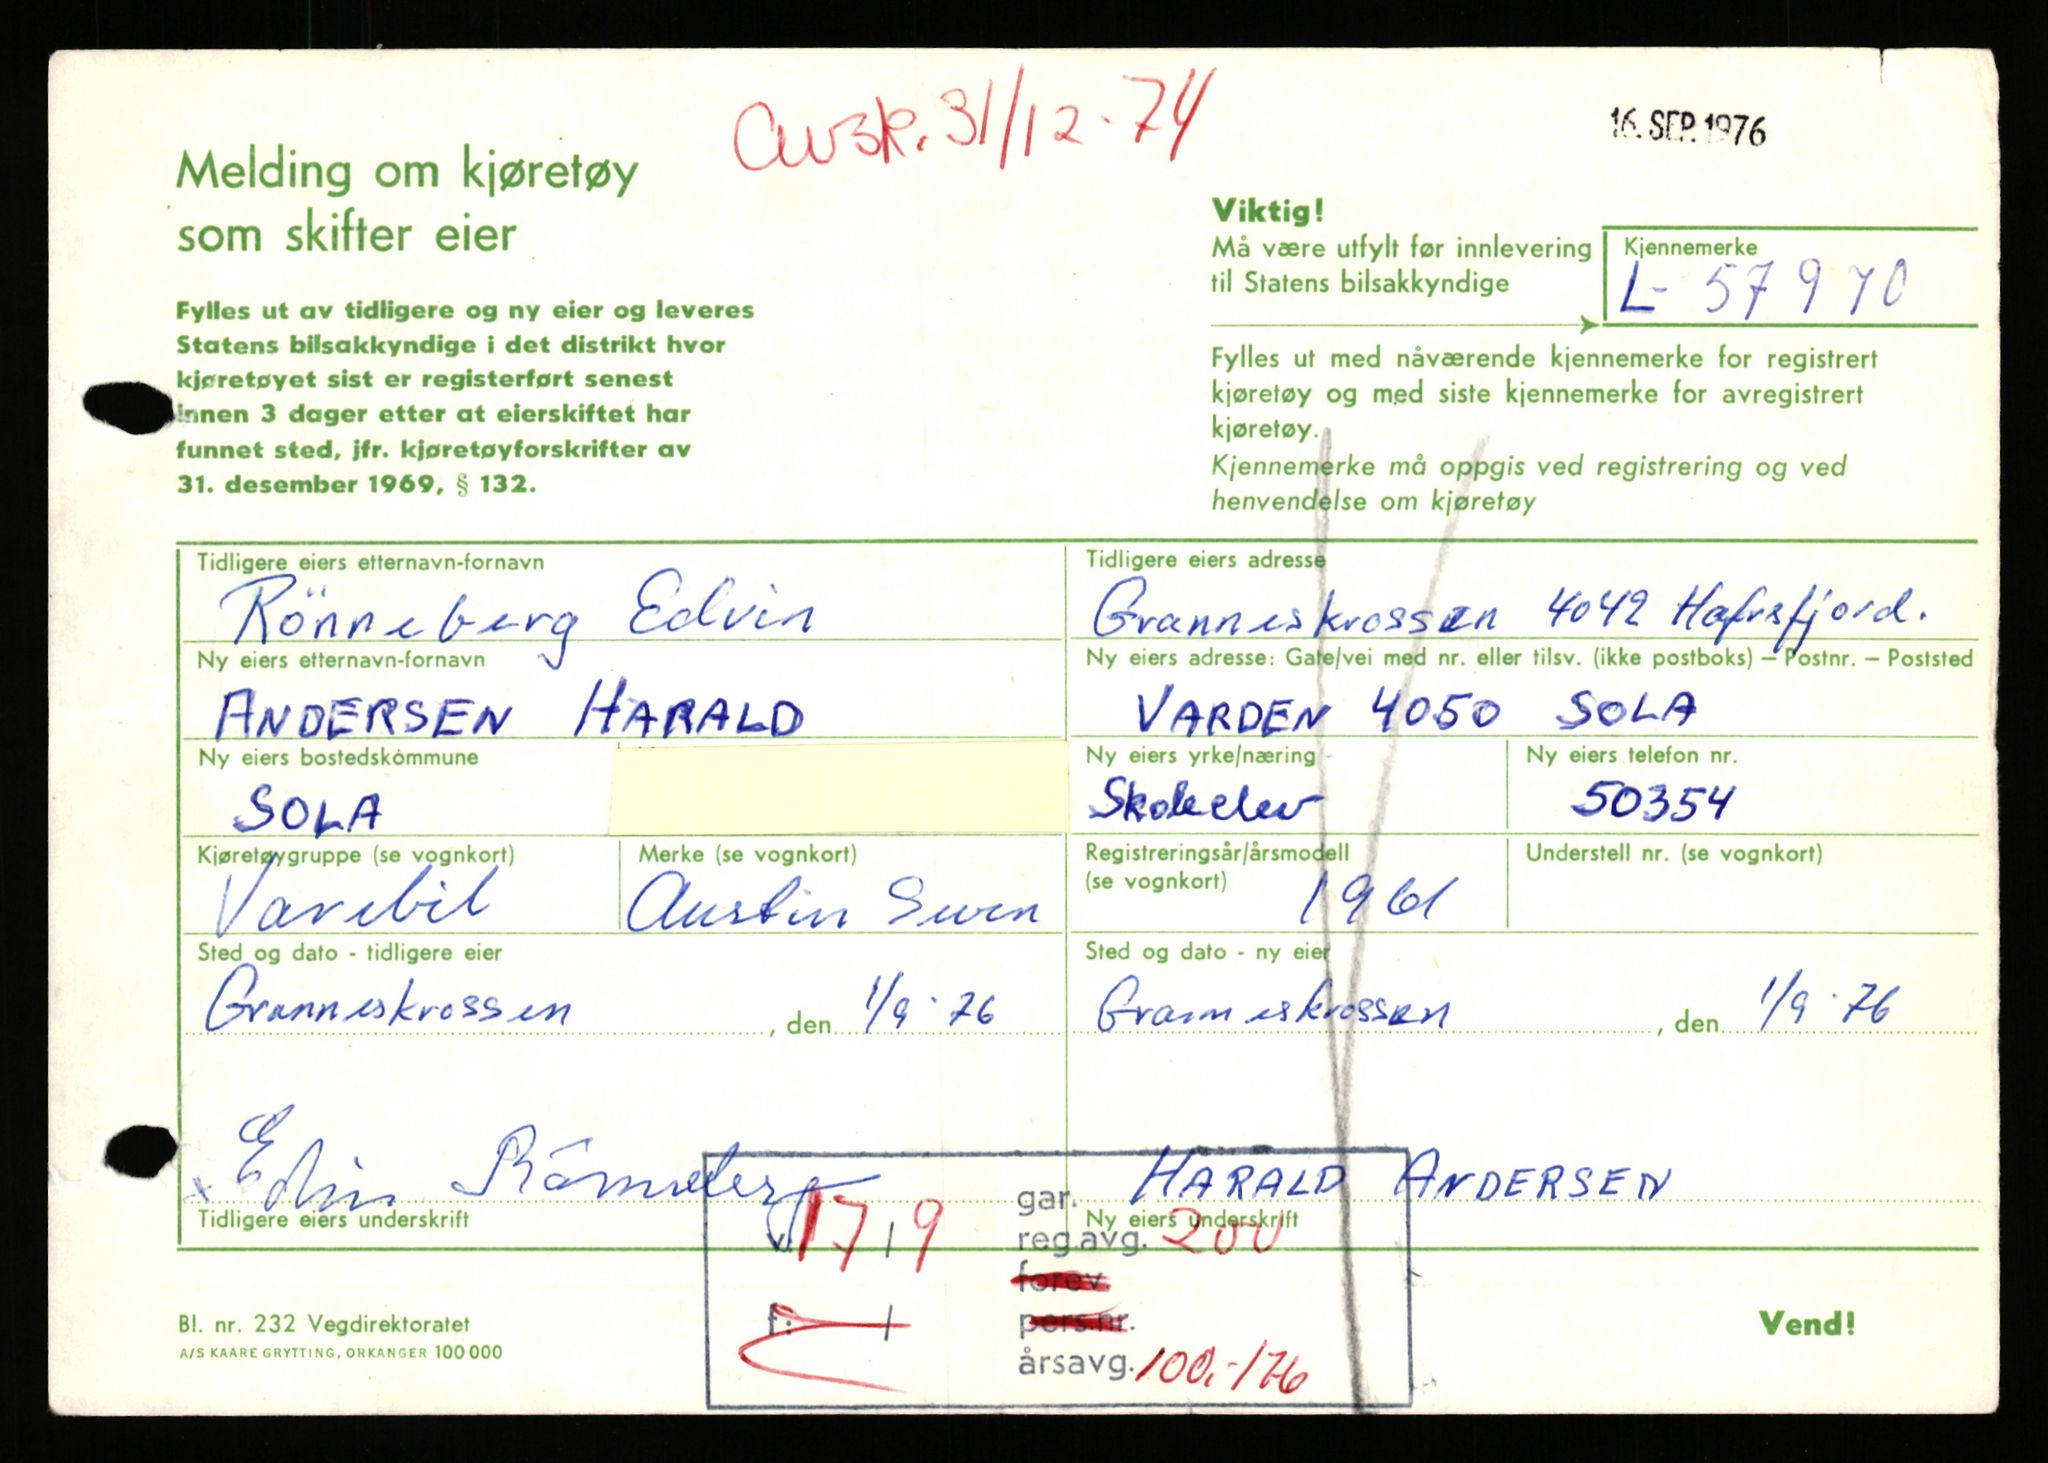 Avsk. 31/12-74
16. SEP. 1976
Melding om kjøretøy
som skifter eier
Fylles ut av tidligere og ny eier og leveres
Statens bilsakkyndige i det distrikt hvor
kjøretøyet sist er registerført senest
innen 3 dager etter at eierskiftet har
funnet sted, jfr. kjøretøyforskrifter av
31. desember 1969, § 132.
Viktig!
Må være utfylt før innlevering
til Statens bilsakkyndige
Kjennemerke
L- 57970
Fylles ut med nåværende kjennemerke for registrert
kjøretøy og med siste kjennemerke for avregistrert
kjøretøy.
Kjennemerke må oppgis ved registrering og ved
henvendelse om kjøretøy
Tidligere eiers etternavn-fornavn
Rönneberg Edvin
Tidligere eiers adresse
Granneskrossen 4042 Hafrsfjord.
Ny eiers etternavn-fornavn
ANDERSEN HARALD
Ny eiers adresse: Gate/vei med nr. eller tilsv. (ikke postboks) – Postnr. – Poststed
VARDEN 4050 SOLA
Ny eiers bostedskommune
SOLA
Ny eiers yrke/næring
Skoleelev
Ny eiers telefon nr.
50354
Kjøretøygruppe (se vognkort)
Varebil
Merke (se vognkort)
Austin Seven
Registreringsår/årsmodell
(se vognkort)
1961
Understell nr. (se vognkort)
Sted og dato - tidligere eier
Granneskrossen , den 1/9-76
Sted og dato - ny eier
Granneskrossen , den 1/9-76
x Edvin Rönneberg
Tidligere eiers underskrift
HARALD ANDERSEN
Ny eiers underskrift
v: 17/9
f: /
gar.
reg.avg. 200
forev.
pers.nr.
årsavg. 100,-/76
Bl. nr. 232 Vegdirektoratet
A/S KAARE GRYTTING, ORKANGER 100 000
Vend!